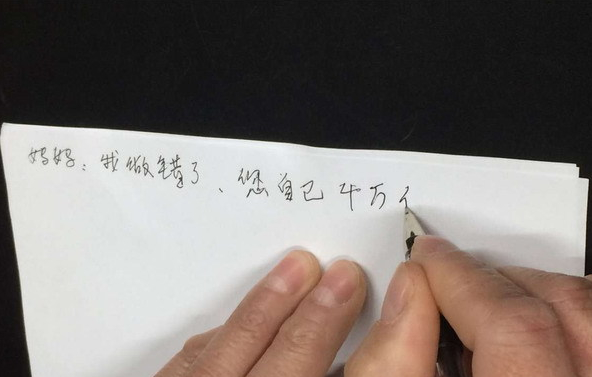 妈妈：我做错了、您自己千万